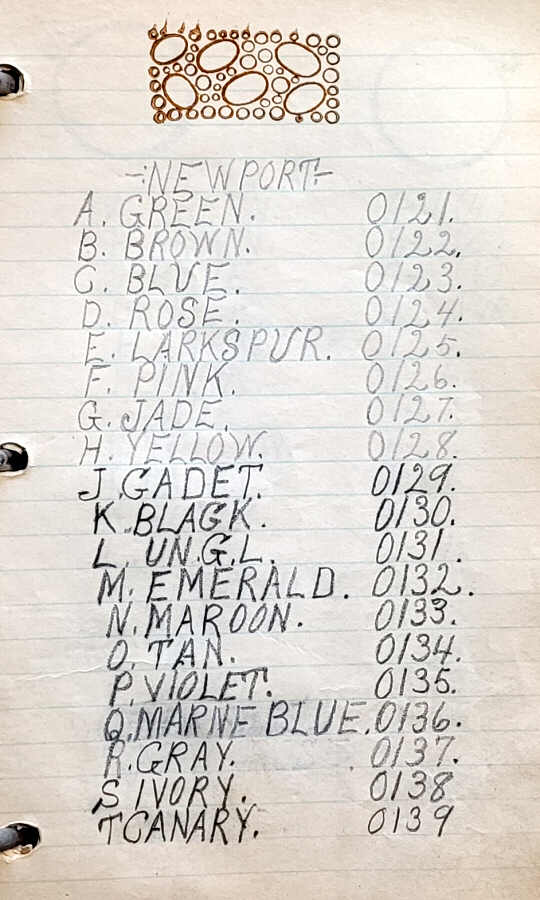 -:NEWPORT:-
A. GREEN. 0121.
B. BROWN. 0122.
C. BLUE. 0123.
D. ROSE. 0124.
E. LARKSPUR. 0125.
F. PINK. 0126.
G. JADE. 0127.
H. YELLOW. 0128.
J. CADET. 0129.
K. BLACK. 0130.
L. UN.G.L. 0131.
M. EMERALD. 0132.
N. MAROON. 0133.
O. TAN. 0134.
P. VIOLET. 0135.
Q. MARNE BLUE. 0136.
R. GRAY. 0137.
S IVORY. 0138
T CANARY. 0139